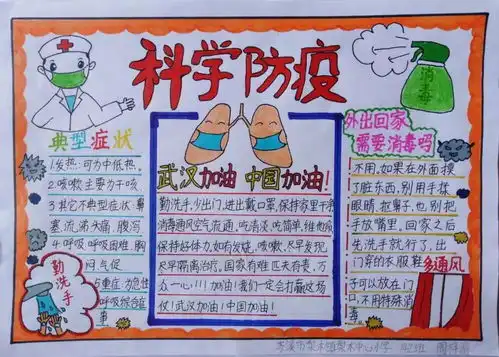 科学防疫
消毒
典型症状
1.发热:可为中低热
2.咳嗽主要为干咳
3.其它不典型症状:鼻
塞,流涕,头痛,腹泻
4.呼吸,呼吸困难,胸
闷,气促
勤洗手
武汉加油 中国加油!
勤洗手,少出门,进出戴口罩,保持家里干净
消毒通风空气流通,吃清淡,吃简单,维他命
保持好体力,如有发烧,咳嗽,尽早发现
尽早隔离治疗。国家有难,匹夫有责,万
众一心!!!加油!我们一定会打赢这场
仗!武汉加油!中国加油!
外出回家
需要消毒吗
不用,如果在外面摸
了脏东西,别用手揉
眼睛,抠鼻子,也别把
手放嘴里。回家之后
先洗手就行了,出
门穿的衣服鞋
子可以放在门
口,不用特殊消
毒
多通风